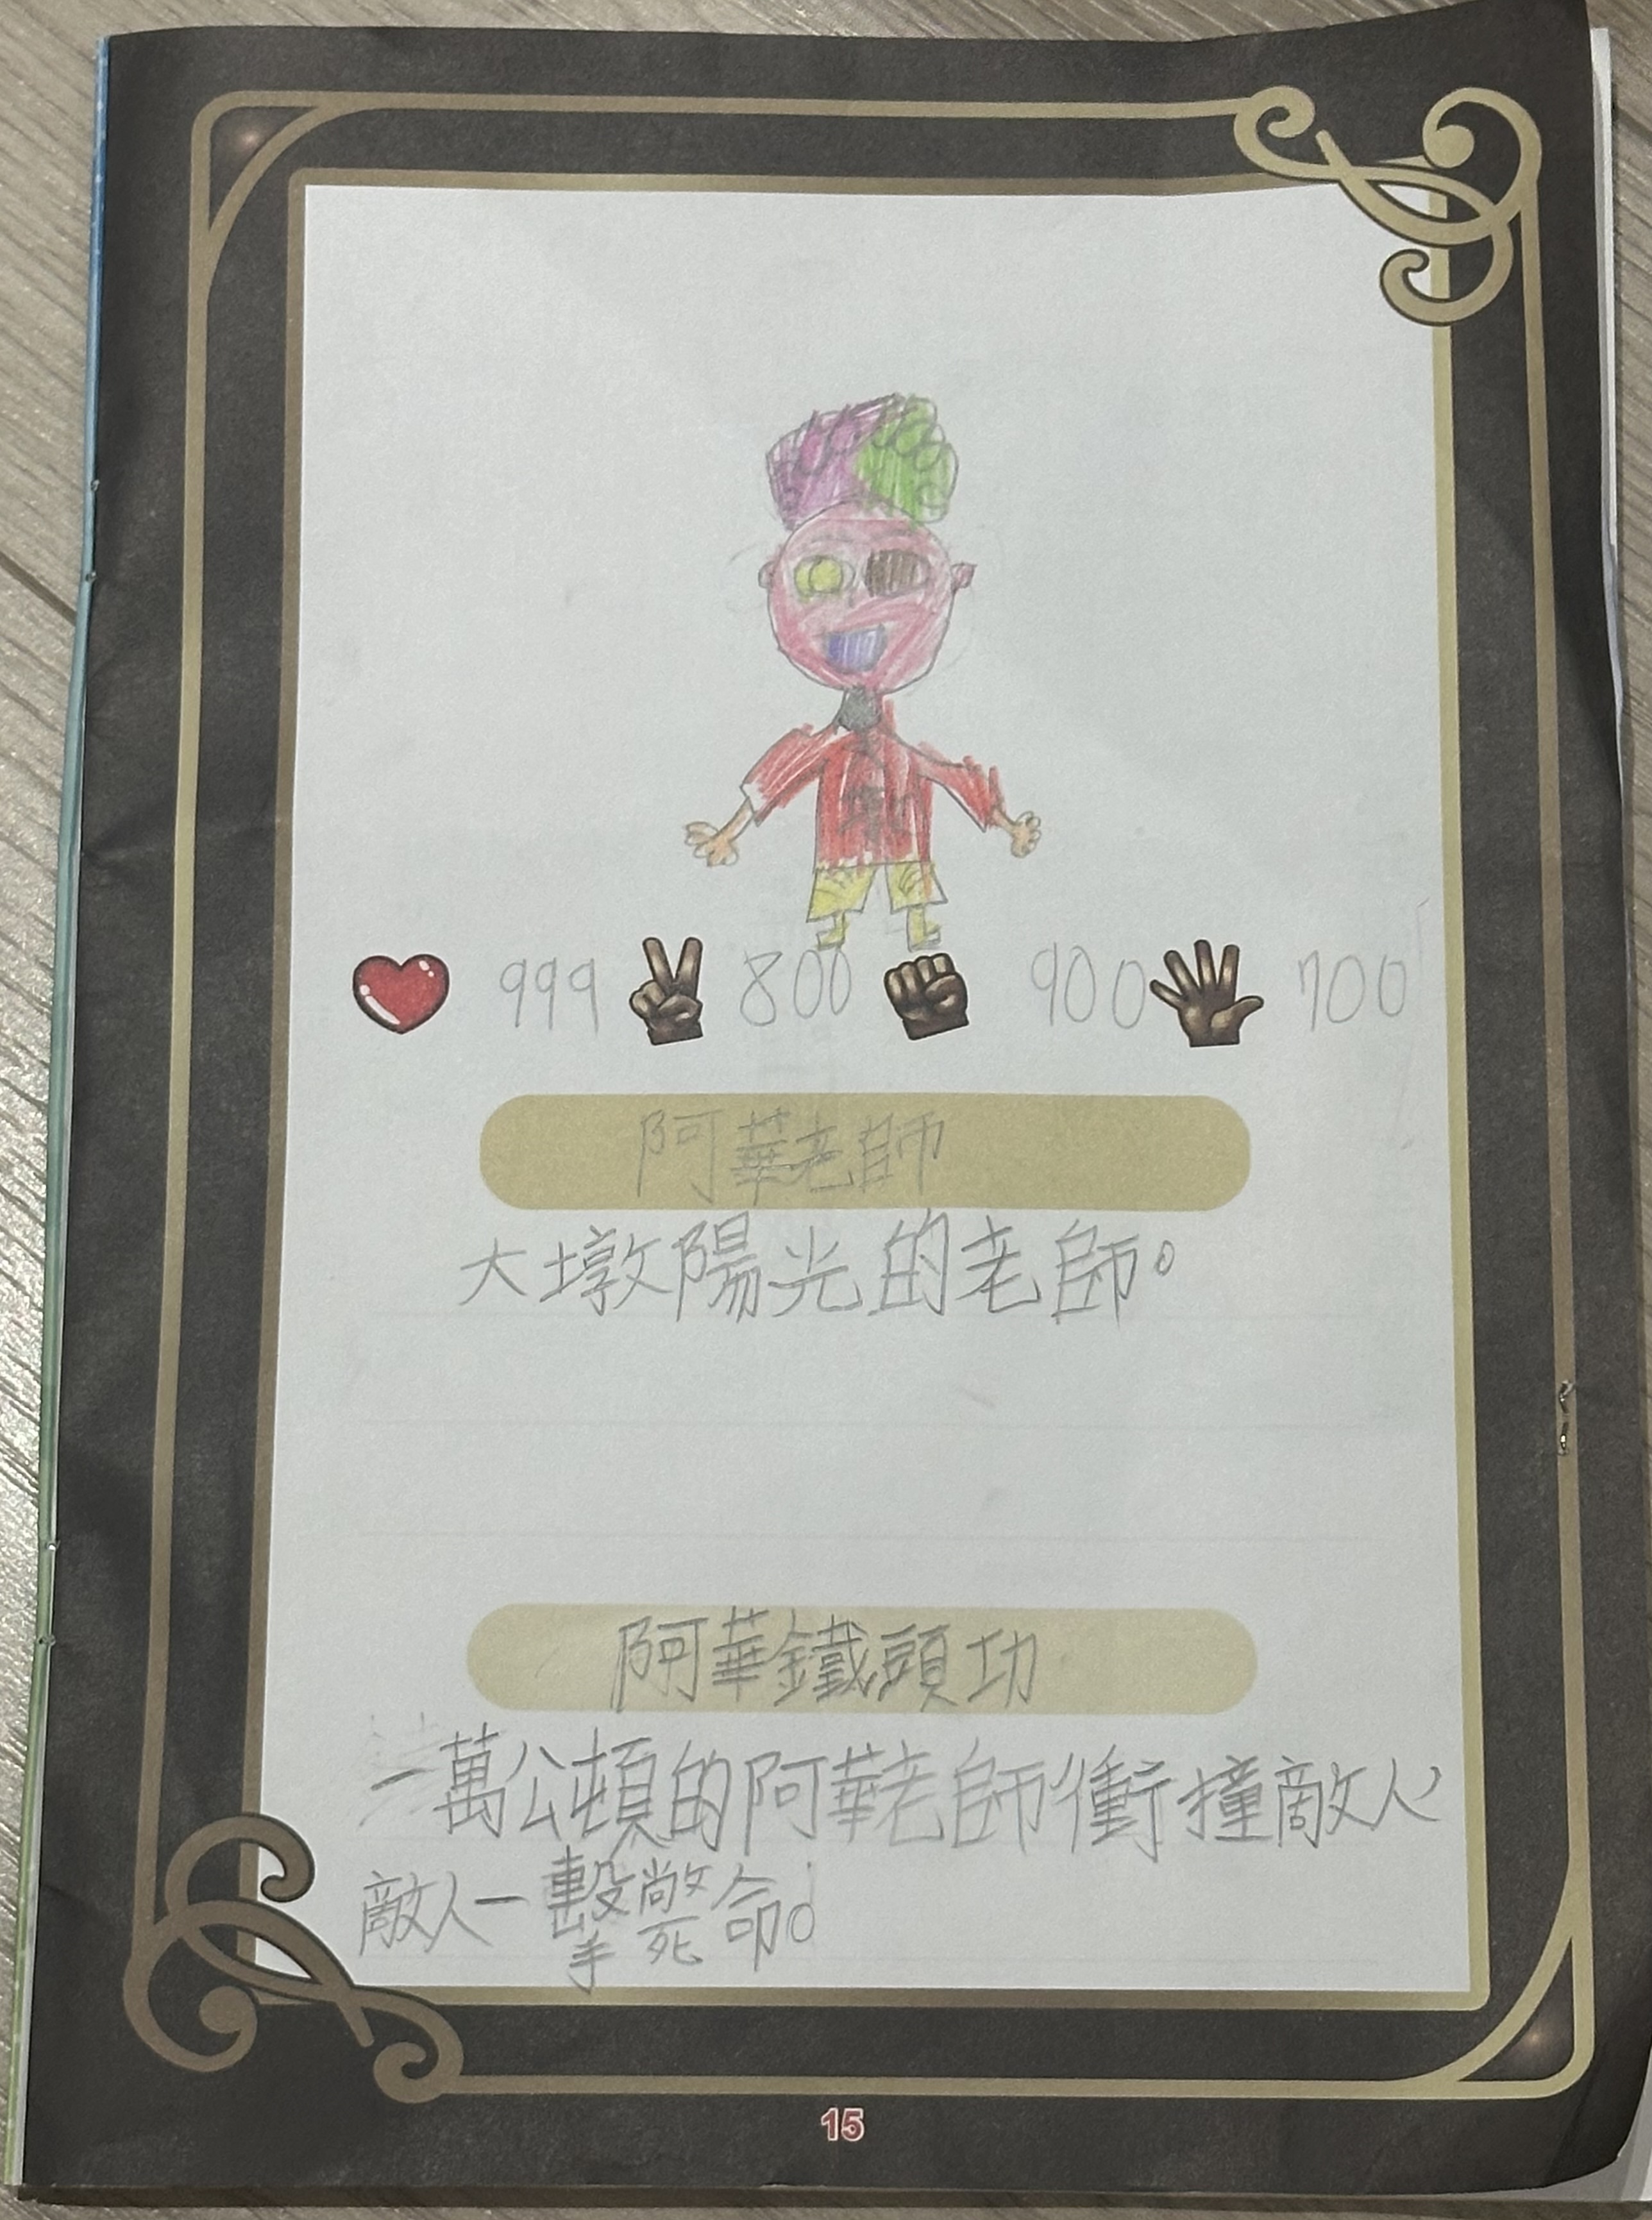 999 800 900 700
阿華老師
大墩陽光的老師。
阿華鐵頭功
一萬公頓的阿華老師衝撞敵人
敵人一擊斃命。
15